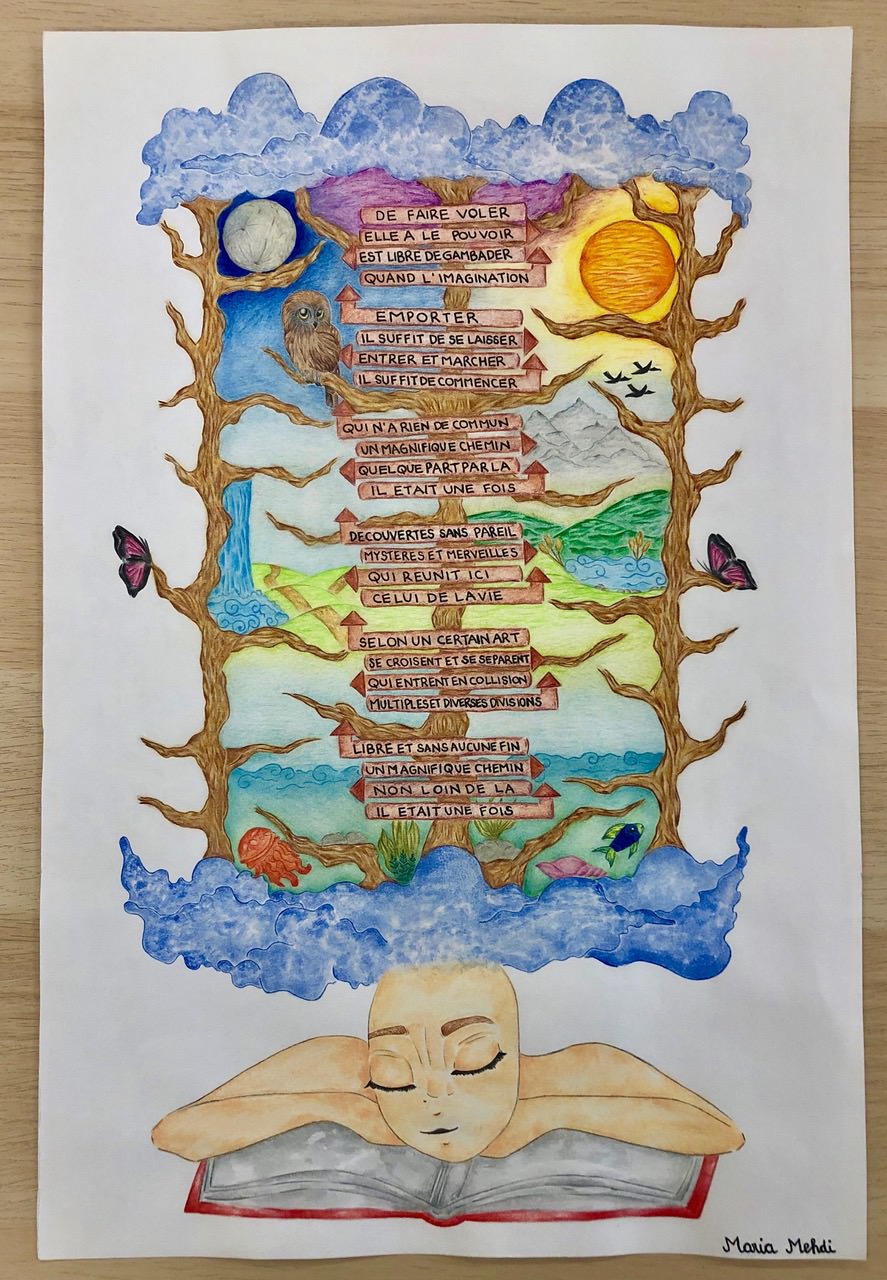 IL ETAIT UNE FOIS
NON LOIN DE LA
UN MAGNIFIQUE CHEMIN
LIBRE ET SANS AUCUNE FIN
MULTIPLES ET DIVERSES DIVISIONS
QUI ENTRENT EN COLLISION
SE CROISENT ET SE SEPARENT
SELON UN CERTAIN ART
CELUI DE LA VIE
QUI REUNIT ICI
MYSTERES ET MERVEILLES
DECOUVERTES SANS PAREIL
IL ETAIT UNE FOIS
QUELQUE PART PAR LA
UN MAGNIFIQUE CHEMIN
QUI N'A RIEN DE COMMUN
IL SUFFIT DE COMMENCER
ENTRER ET MARCHER
IL SUFFIT DE SE LAISSER
EMPORTER
QUAND L'IMAGINATION
EST LIBRE DE GAMBADER
ELLE A LE POUVOIR
DE FAIRE VOLER
Maria Mehdi